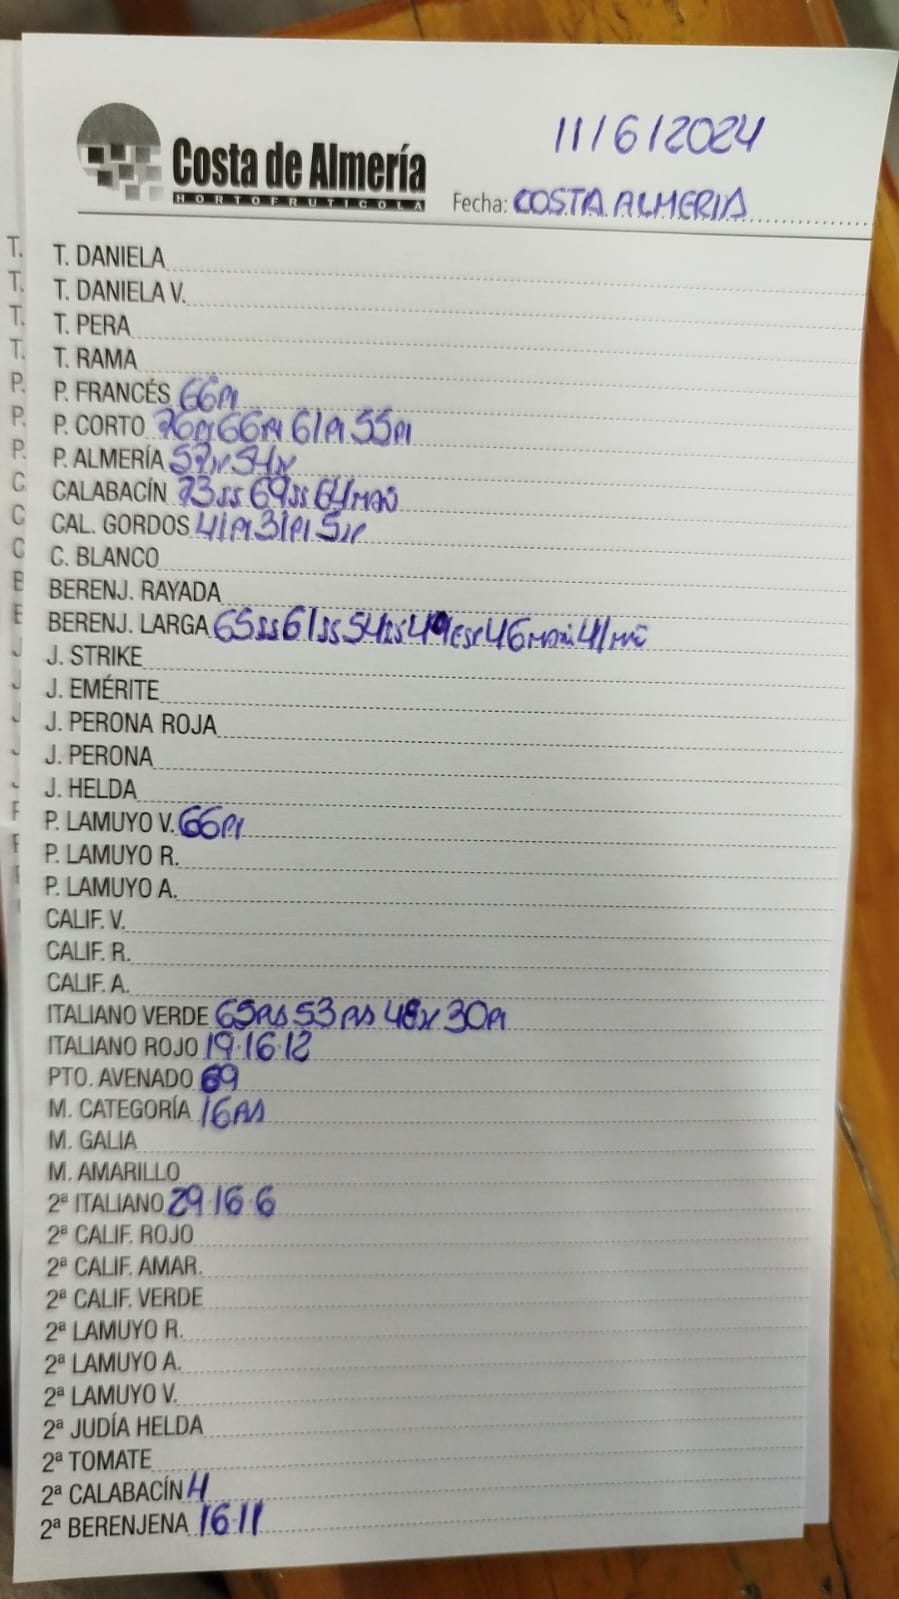 11/6/2024
Costa de Almería
HORTOFRUTICOLA
Fecha: COSTA ALMERIA
T. DANIELA
T. DANIELA V.
T. PERA
T. RAMA
P. FRANCÉS 66PI
P. CORTO 76PI 66PI 61PI 55PI
P. ALMERÍA 57N 54N
CALABACÍN 73SS 69SS 64
CAL. GORDOS 41PI 31PI
C. BLANCO
BERENJ. RAYADA
BERENJ. LARGA 65SS 61SS 54 49 46 41
J. STRIKE
J. EMÉRITE
J. PERONA ROJA
J. PERONA
J. HELDA
P. LAMUYO V. 66PI
P. LAMUYO R.
P. LAMUYO A.
CALIF. V.
CALIF. R.
CALIF. A.
ITALIANO VERDE 65 53 48 30PI
ITALIANO ROJO 19·16·12
PTO. AVENADO 69
M. CATEGORÍA 16
M. GALIA
M. AMARILLO
2ª ITALIANO 29·16·6
2ª CALIF. ROJO
2ª CALIF. AMAR.
2ª CALIF. VERDE
2ª LAMUYO R.
2ª LAMUYO A.
2ª LAMUYO V.
2ª JUDÍA HELDA
2ª TOMATE
2ª CALABACÍN 4
2ª BERENJENA 16·11